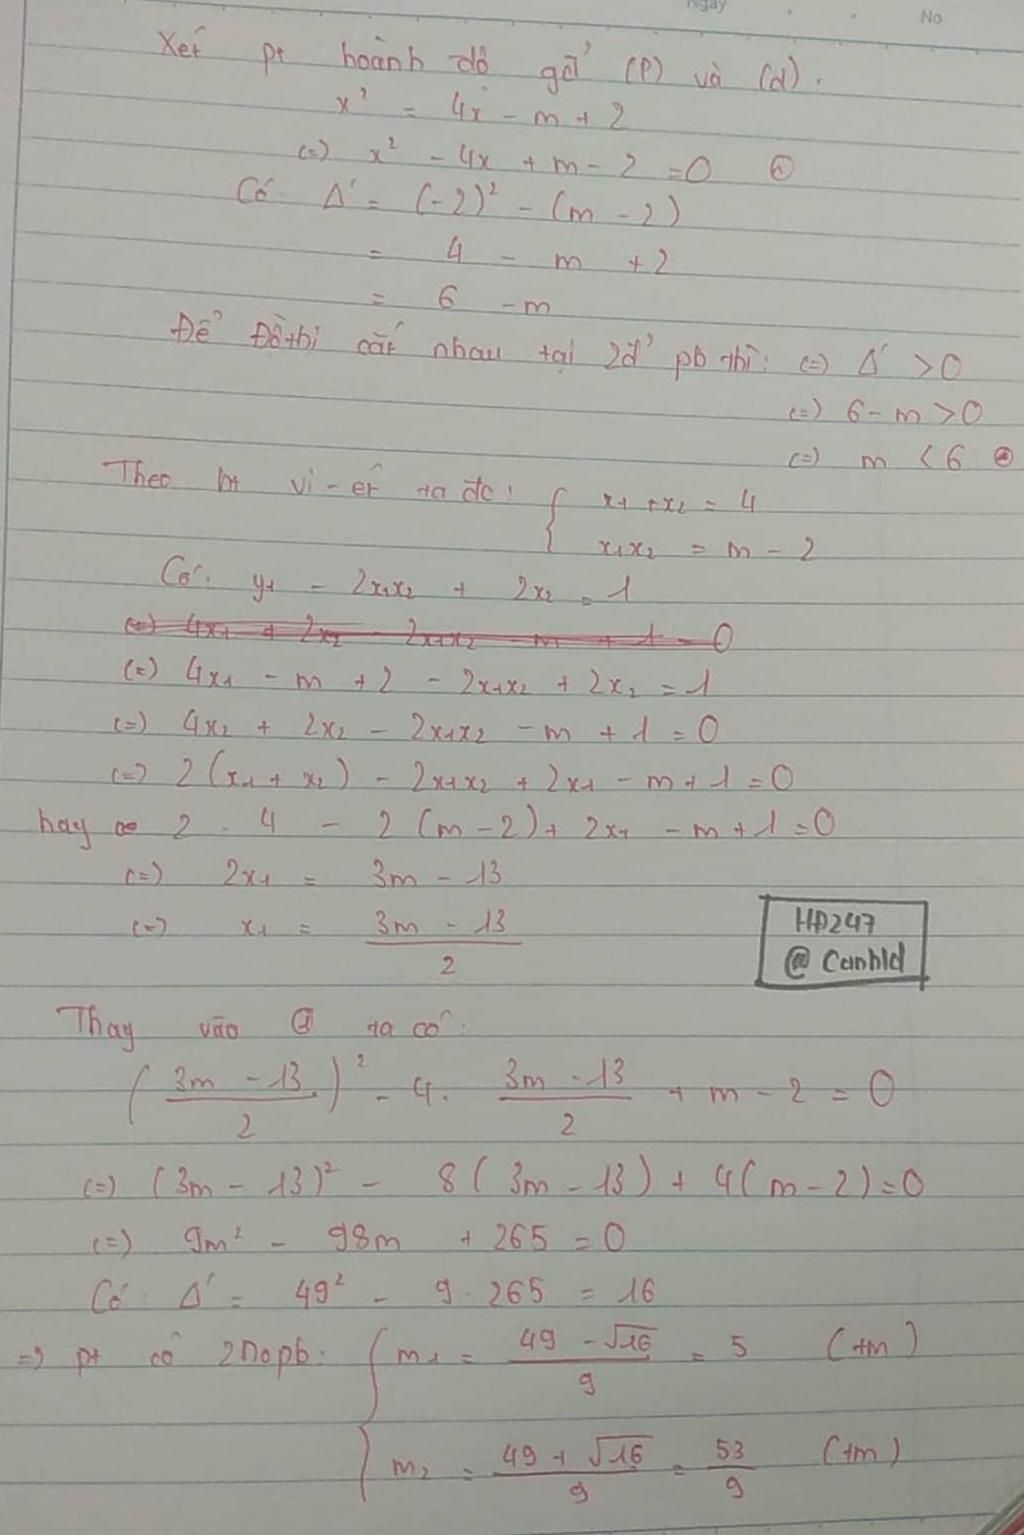 Ngày No
Xét pt hoành độ gđ' (P) và (d).
x² = 4x - m + 2
(=) x² - 4x + m - 2 = 0 ①
Có: Δ' = (-2)² - (m - 2)
= 4 - m + 2
= 6 - m
Để Đồ thị cắt nhau tại 2đ' pb thì: (=) Δ' > 0
(=) 6 - m > 0
(=) m < 6
Theo ht vi-ét ta đc: { x₁ + x₂ = 4
x₁x₂ = m - 2
Có: y₁ - 2x₁x₂ + 2x₂ = 1
(=) 4x₁ + 2x₂ - 2x₁x₂ - m + 1 = 0
(=) 4x₁ - m + 2 - 2x₁x₂ + 2x₂ = 1
(=) 4x₂ + 2x₂ - 2x₁x₂ - m + 1 = 0
(=) 2(x₁ + x₂) - 2x₁x₂ + 2x₁ - m + 1 = 0
hay 2 . 4 - 2(m - 2) + 2x₁ - m + 1 = 0
(=) 2x₁ = 3m - 13
(=) x₁ = (3m - 13)/2
HD247
@ Canhld
Thay vào ① ta có:
((3m - 13)/2)² - 4. (3m - 13)/2 + m - 2 = 0
(=) (3m - 13)² - 8(3m - 13) + 4(m - 2) = 0
(=) 9m² - 98m + 265 = 0
Có: Δ' = 49² - 9.265 = 16
=> pt có 2nopb: { m₁ = (49 - √16)/9 = 5 (tm)
m₂ = (49 + √16)/9 = 53/9 (tm)